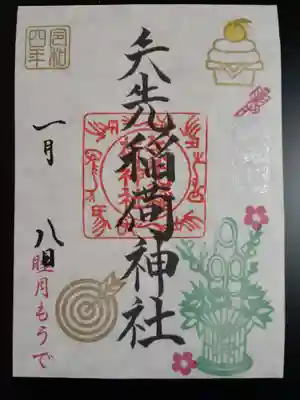 矢先稲荷神社
令和
四年
一月 八日
睦月もうで